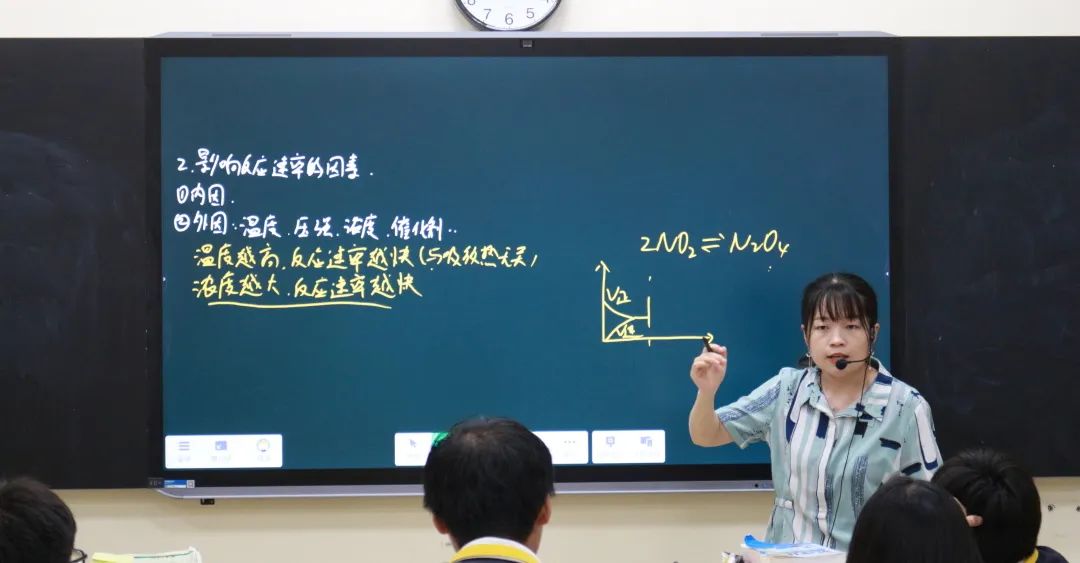 7 6 5
2.影响反应速率的因素.
①内因.
②外因:温度、压强、浓度、催化剂..
温度越高、反应速率越快(与吸放热无关)
浓度越大、反应速率越快
2NO₂⇌N₂O₄
V正
V逆